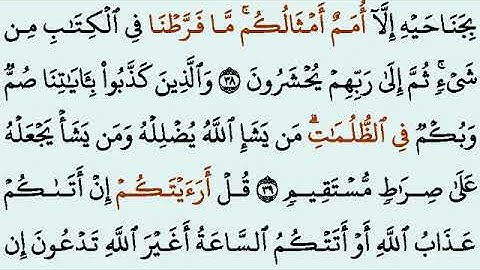 بِجَنَاحَيْهِ إِلَّآ أُمَمٌ أَمْثَالُكُم ۚ مَّا فَرَّطْنَا فِي الْكِتَابِ مِن
شَيْءٍ ۚ ثُمَّ إِلَىٰ رَبِّهِمْ يُحْشَرُونَ ۝٣٨ وَالَّذِينَ كَذَّبُوا۟ بِـَٔايَاتِنَا صُمٌّ
وَبُكْمٌ فِي الظُّلُمَاتِ ۗ مَن يَشَإِ اللَّهُ يُضْلِلْهُ وَمَن يَشَأْ يَجْعَلْهُ
عَلَىٰ صِرَاطٍ مُّسْتَقِيمٍ ۝٣٩ قُلْ أَرَءَيْتَكُمْ إِنْ أَتَىٰكُمْ
عَذَابُ اللَّهِ أَوْ أَتَتْكُمُ السَّاعَةُ أَغَيْرَ اللَّهِ تَدْعُونَ إِن